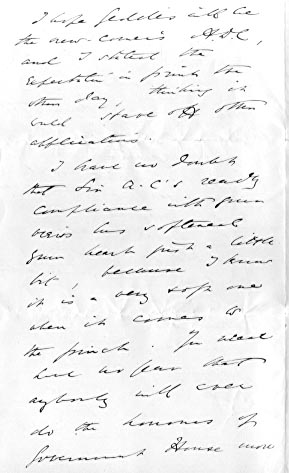 I hope Geddes will be
the new-comer's A.D.C,
and I stated the
expectation in print the
other day, thinking it
would stave off other
applications.
I have no doubt
that Sir A. C's ready
compliance with
has softened
heart just a little
bit, because I know
it is a very soft one
when it comes to
the pinch. You need
have no fear that
anybody will ever
do the honours of
Government House more